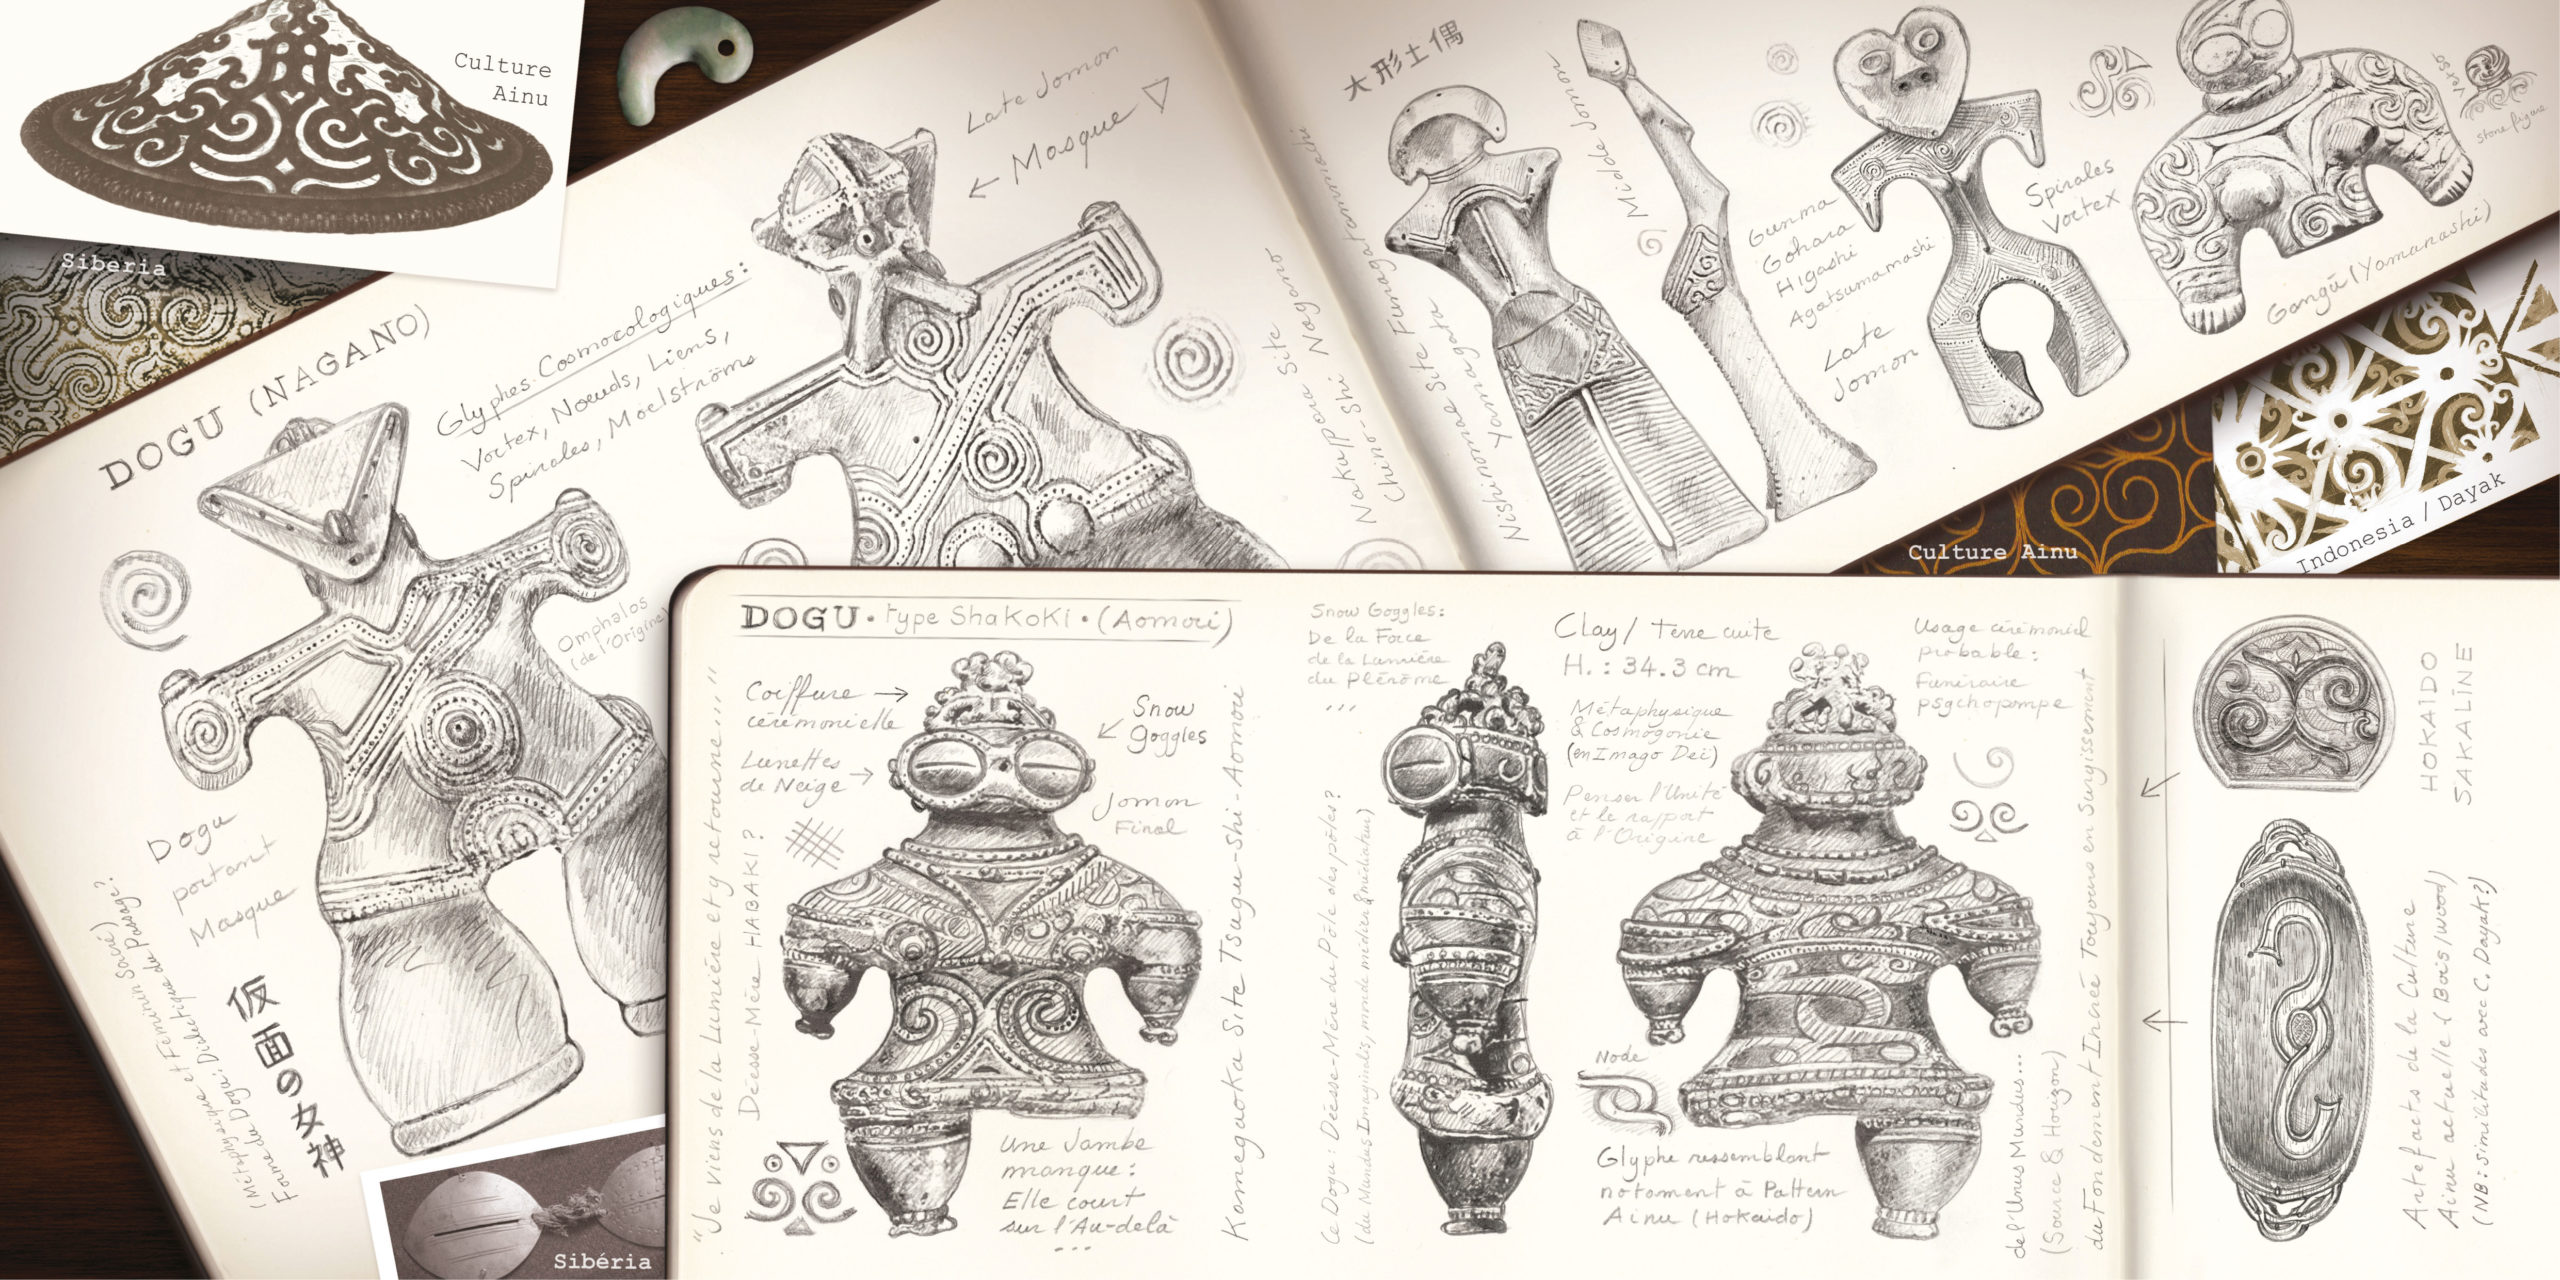 Culture
Ainu
Siberia
DOGU (NAGANO)
Glyphes Cosmoecologiques:
Vortex, Noeuds, Liens,
Spirales, Moelströms
Late Jomon
← Masque ▽
Omphalos
(de l'Origine)
Dogu
portant
Masque
(Métaphysique et Féminin Sacré)
Forme du Dogu: Dialectique du Passage?
仮面の女神
Sibéria
Nakappara Site
Chino-Shi Nagano
大形土偶
Nishinomae Site Funagatamachi
Yamagata
Middle Jomon
Gunma
Gohara
Higashi
Agatsumamashi
Late
Jomon
Spirales
Vortex
Verso
stone figure
Gangū (Yamanashi)
Culture Ainu
Indonesia / Dayak
DOGU • type Shakoki • (Aomori)
Coiffure →
cérémonielle
Lunettes
de Neige →
Snow
Goggles
Jomon
Final
"Je viens de la Lumière et y retourne...."
Déesse-Mère HABAKI?
Une Jambe
manque:
Elle court
sur l'Au-delà
...
Kamegaoka Site Tsugu-Shi-Aomori
Snow Goggles:
De la Force
de la Lumière
du Plérôme
...
Le Dogu: Déesse-Mère du Pôle des pôles?
(du Mundus Imaginalis, monde médian & médiateur)
Clay / Terre cuite
H.: 34.3 cm
Métaphysique
& Cosmogonie
(en Imago Dei)
Penser l'Unité
et le rapport
à l'Origine
Usage cérémoniel
probable:
Funéraire
psychopompe
Node
Glyphe ressemblant
notament à Pattern
Ainu (Hokaido)
de l'Unus Mundus...
(Source & Horizon)
du Fondement Incréé Toujours en Surgissement
HOKAÏDO
SAKALÎNE
Artefacts de la Culture
Ainu actuelle (Bois/wood)
(NB: similitudes avec C. Dayak?)